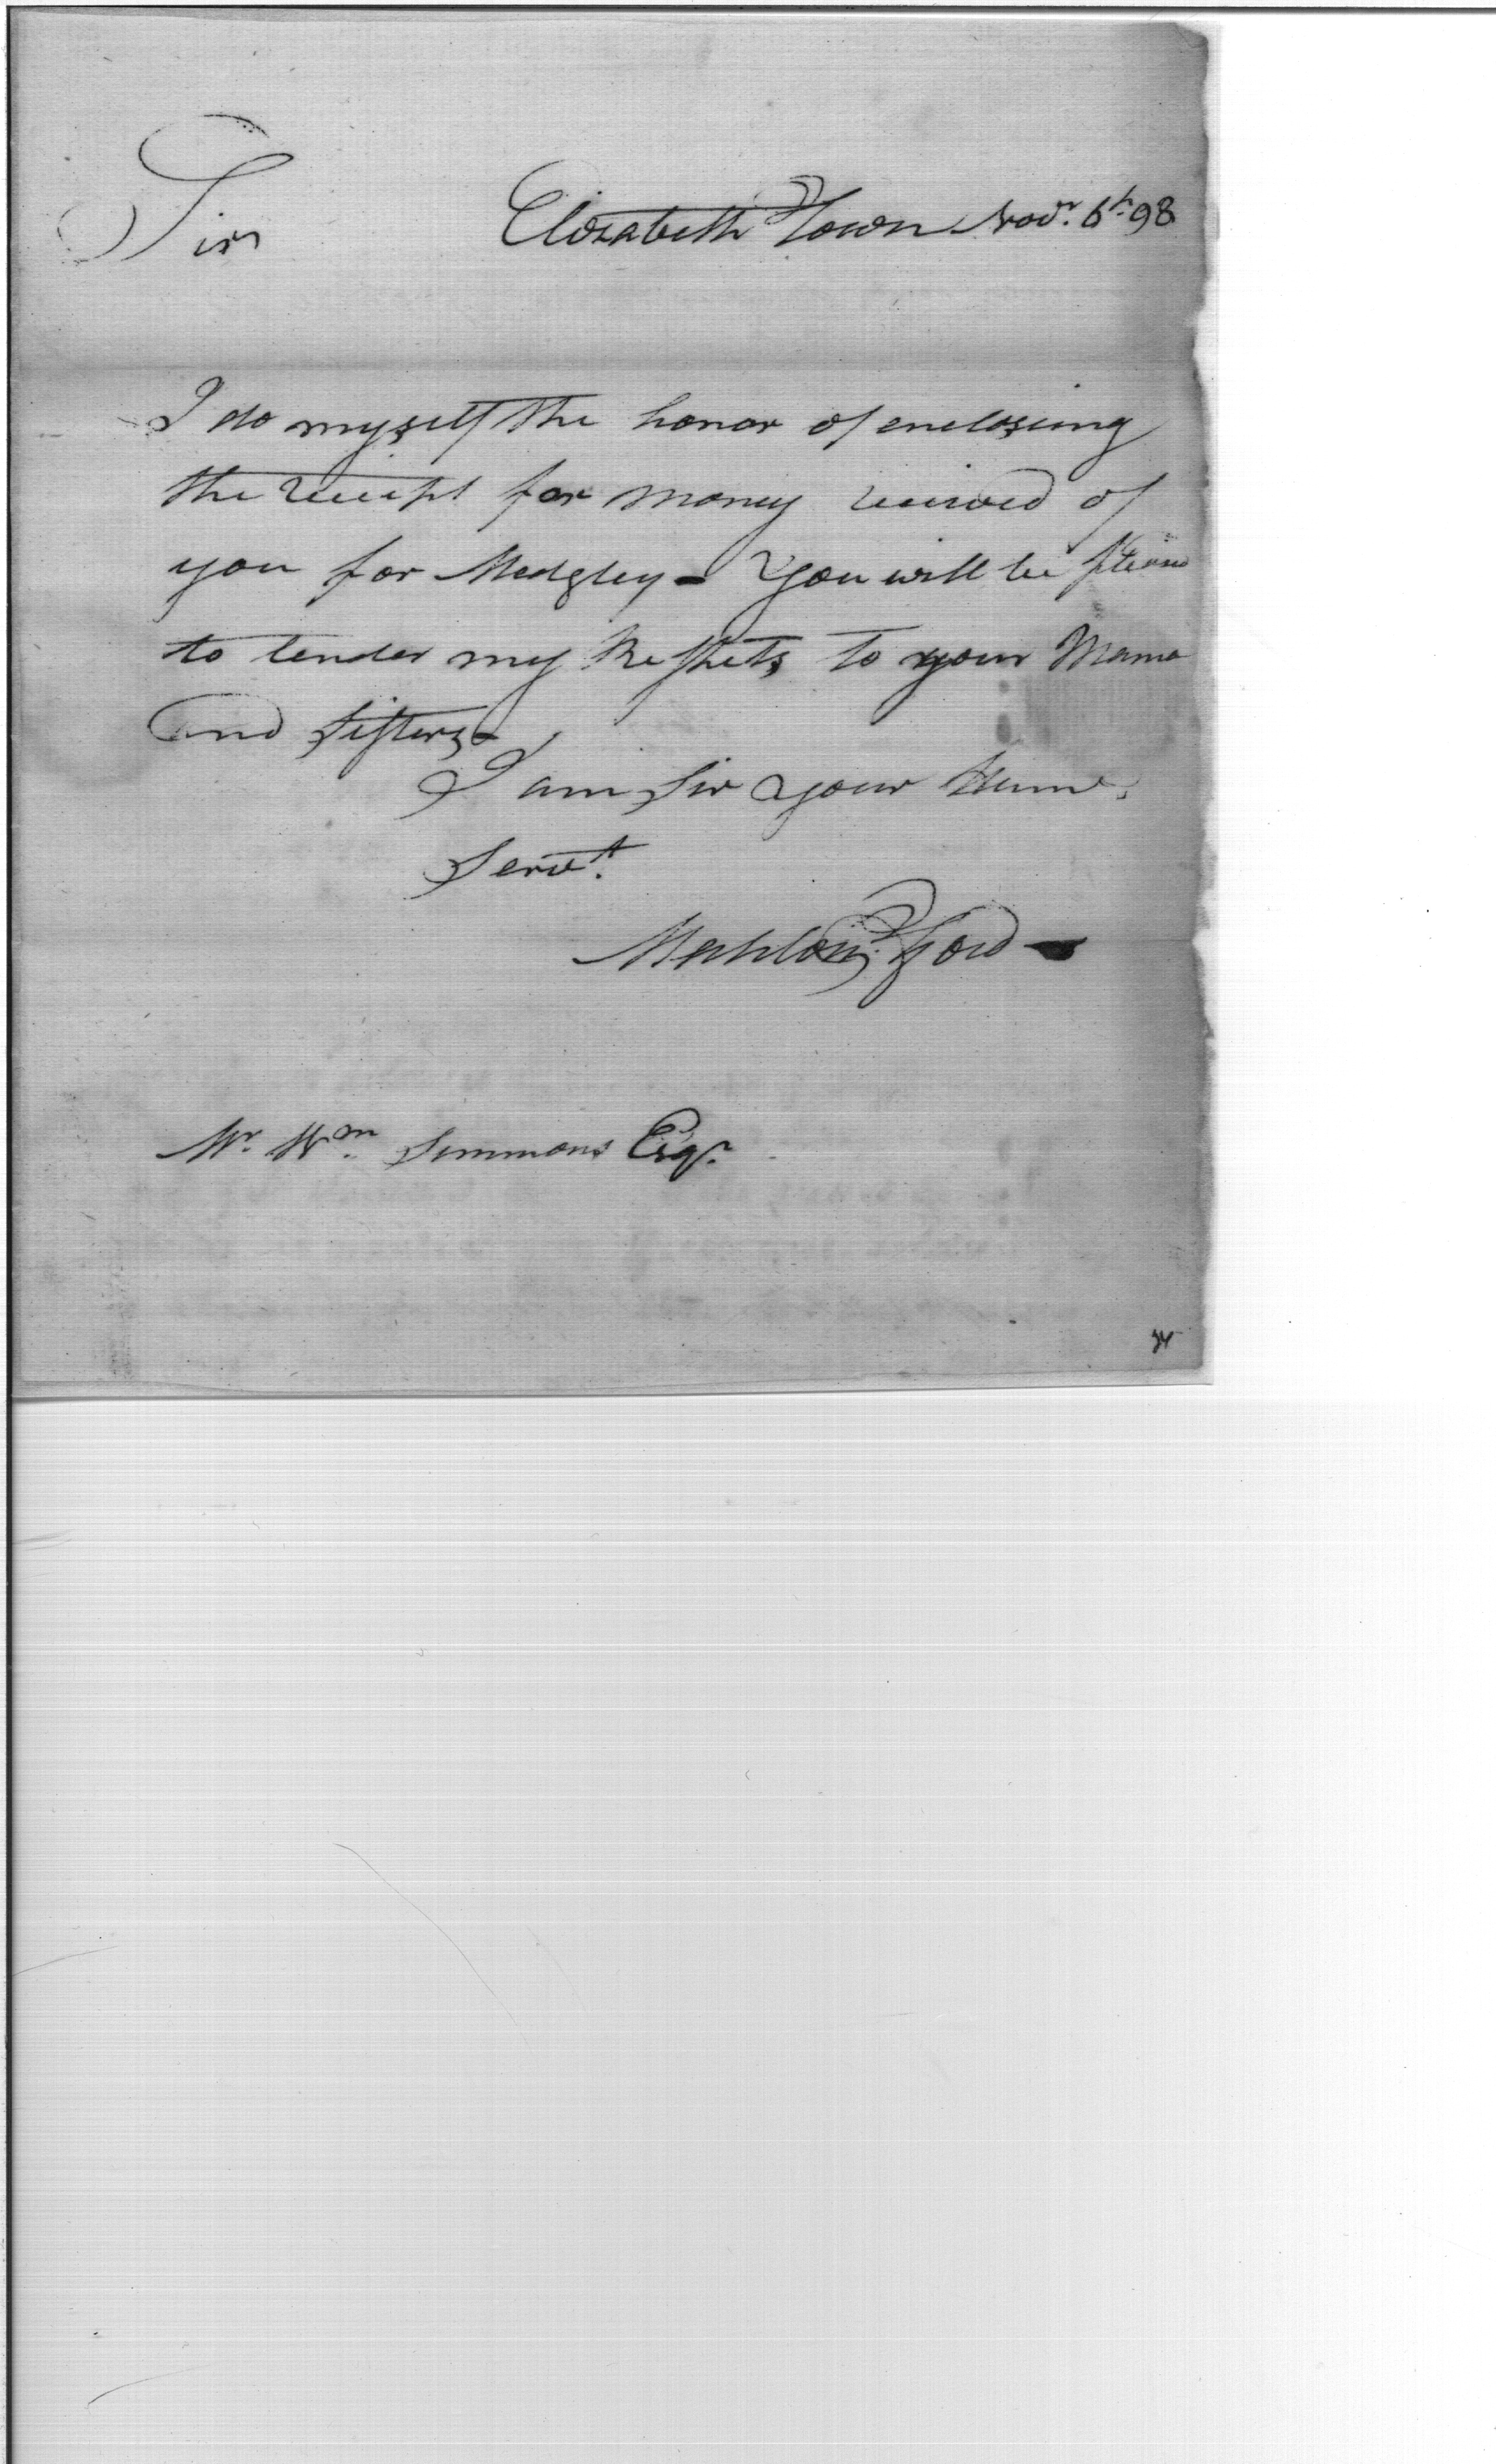 Sir
Elizabeth Town Novr. 6th. 98
I do myself the honor of enclosing
the receipt for money received of
you for Medgley - You will be pleased
to tender my Respets to your Mama
and Sisters -
I am Sir your Hume.
Servt.
Mahlon Ford -
Mr. Wm. Simmons Esqr.